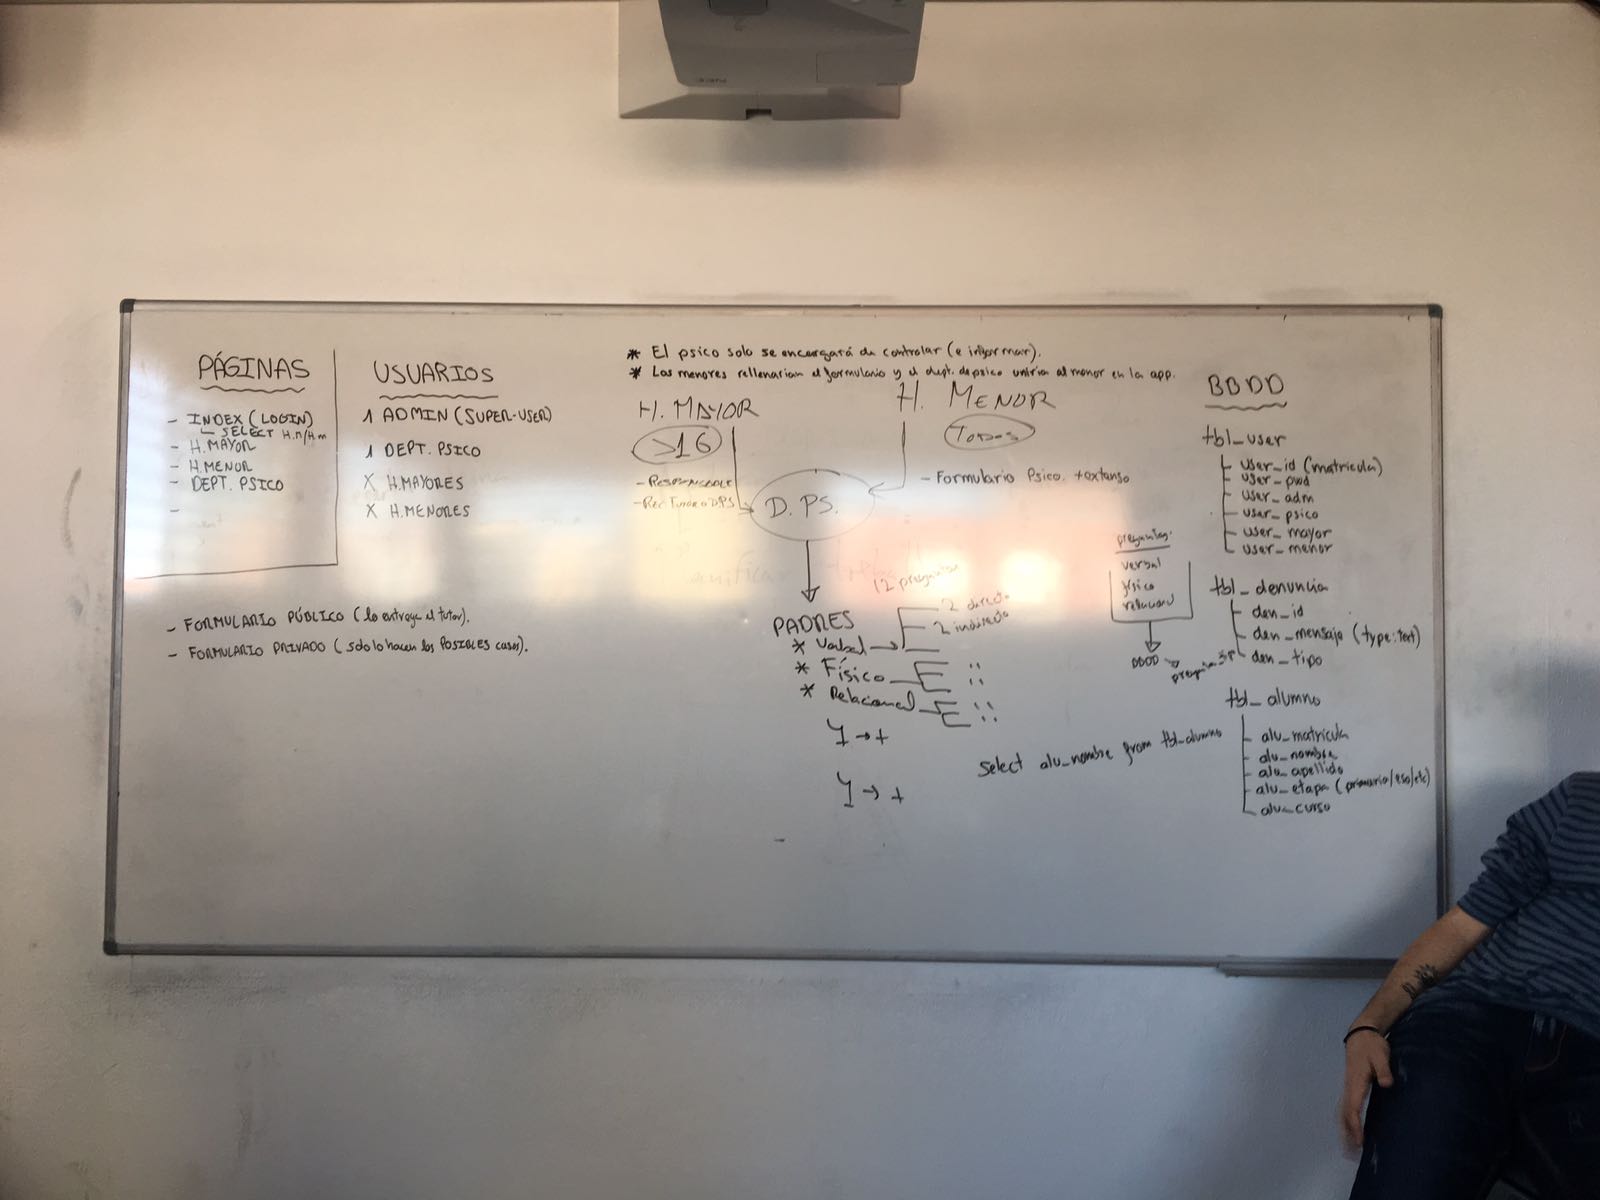 PÁGINAS
- INDEX (LOGIN)
SELECT H.M/H.m
- H.MAYOR
- H.MENOR
- DEPT. PSICO
-
USUARIOS
1 ADMIN (SUPER-USER)
1 DEPT. PSICO
X H.MAYORES
X H.MENORES
- FORMULARIO PÚBLICO (lo entrega el tutor).
- FORMULARIO PRIVADO (solo lo hacen los POSIBLES casos).
* El psico solo se encargará de controlar (e informar).
* Los menores rellenarian el formulario y el dept. de psico uniria al menor en la app.
H. MAYOR
>16
- RESPONSABLE
H. MENOR
Todos
- Formulario Psico. +extenso
D. PS.
12 preguntas
2 directo
2 indirecto
PADRES
* Verbal
* Físico
* Relacional
preguntas:
verbal
físico
relacional
BBDD
Select alu_nombre from tbl_alumno
BBDD
tbl_user
user_id (matricula)
user_pwd
user_adm
user_psico
user_mayor
user_menor
tbl_denuncia
den_id
den_mensaje (type:text)
den_tipo
tbl_alumno
alu_matricula
alu_nombre
alu_apellido
alu_etapa (primaria/eso/etc)
alu_curso